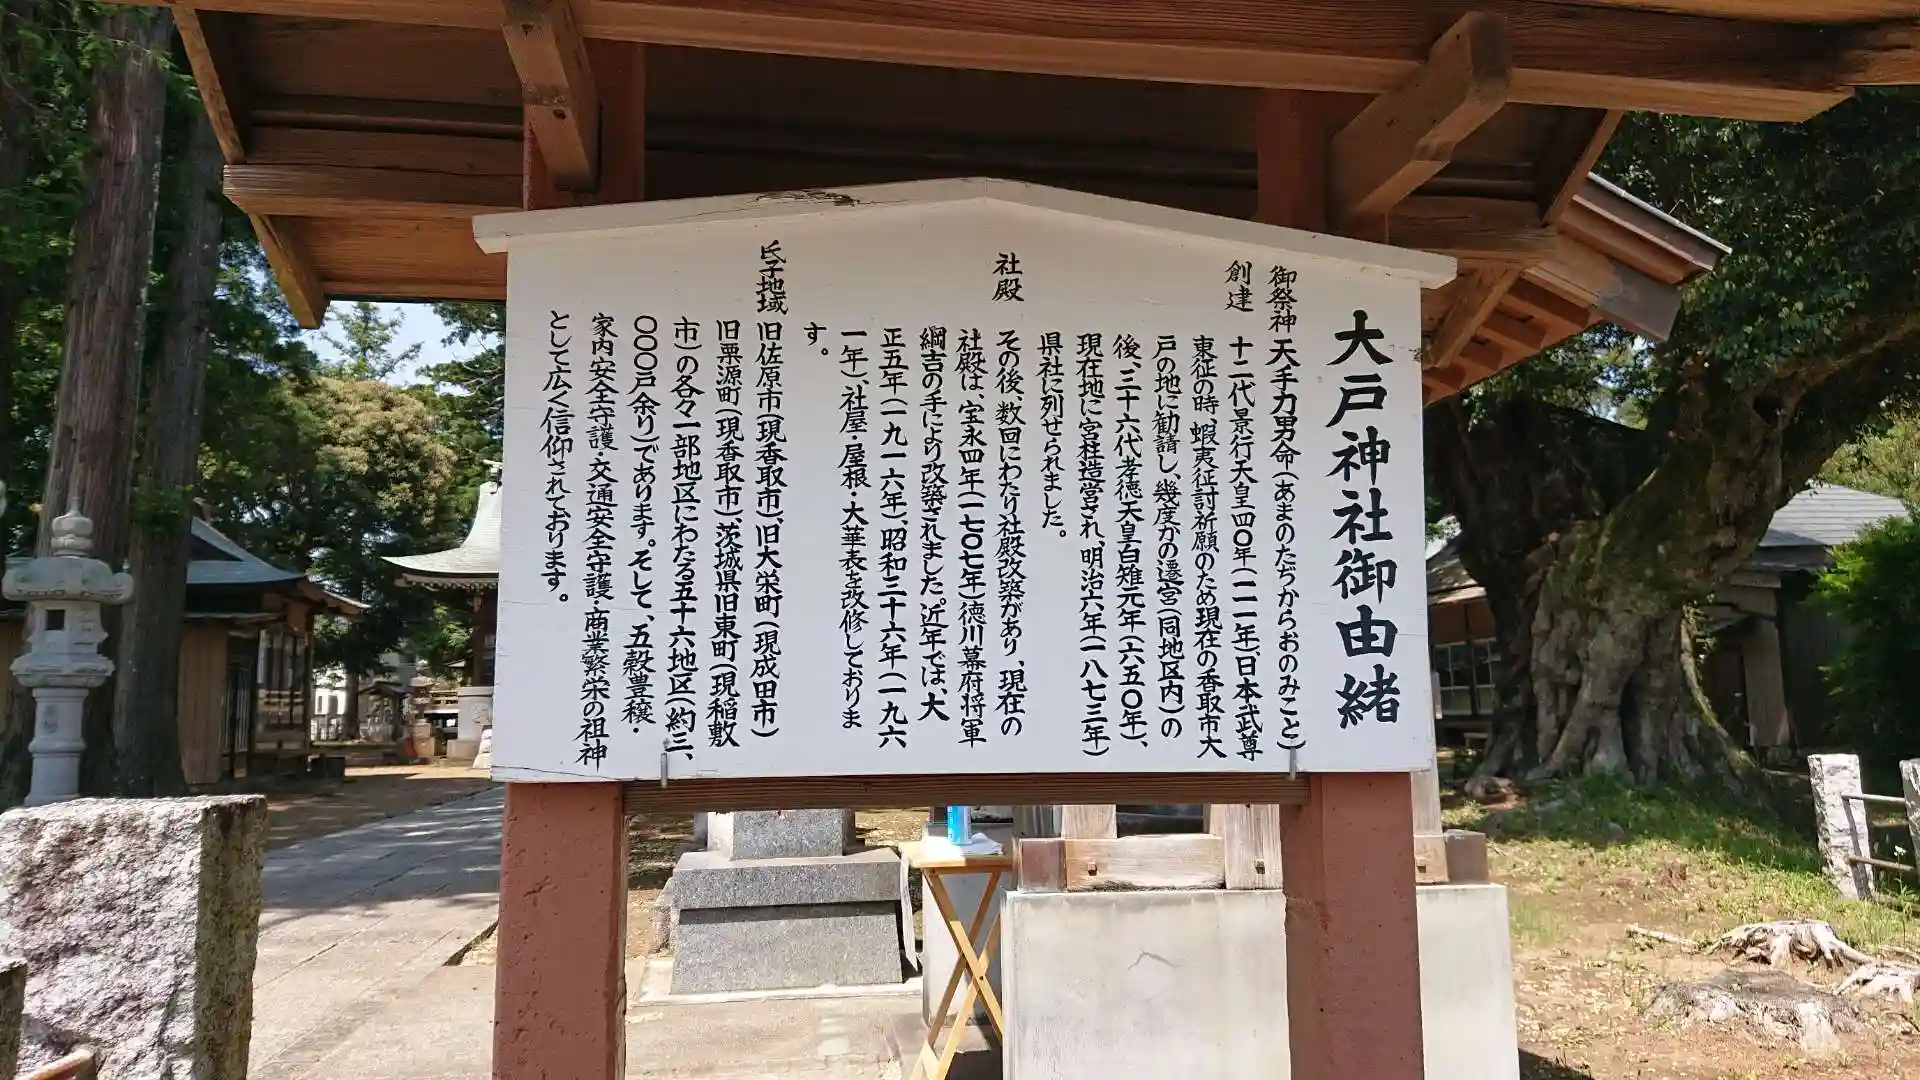 大戸神社御由緒
御祭神 天手力男命(あまのたぢからおのみこと)
創建 十二代景行天皇四〇年(一一一年)、日本武尊
東征の時、蝦夷征討祈願のため現在の香取市大
戸の地に勧請し、幾度かの遷宮(同地区内)の
後、三十六代孝徳天皇白雉元年(六五〇年)、
現在地に宮柱造営され、明治六年(一八七三年)
県社に列せられました。
社殿 その後、数回にわたり社殿改築があり、現在の
社殿は、宝永四年(一七〇七年)徳川幕府将軍
綱吉の手により改築されました。近年では、大
正五年(一九一六年)、昭和三十六年(一九六
一年)、社屋・屋根・大華表を改修しておりま
す。
氏子地域 旧佐原市(現香取市)、旧大栄町(現成田市)
旧栗源町(現香取市)、茨城県旧東町(現稲敷
市)の各々一部地区にわたる五十六地区(約三、
〇〇〇戸余り)であります。そして、五穀豊穣・
家内安全守護・交通安全守護・商業繁栄の祖神
として広く信仰されております。